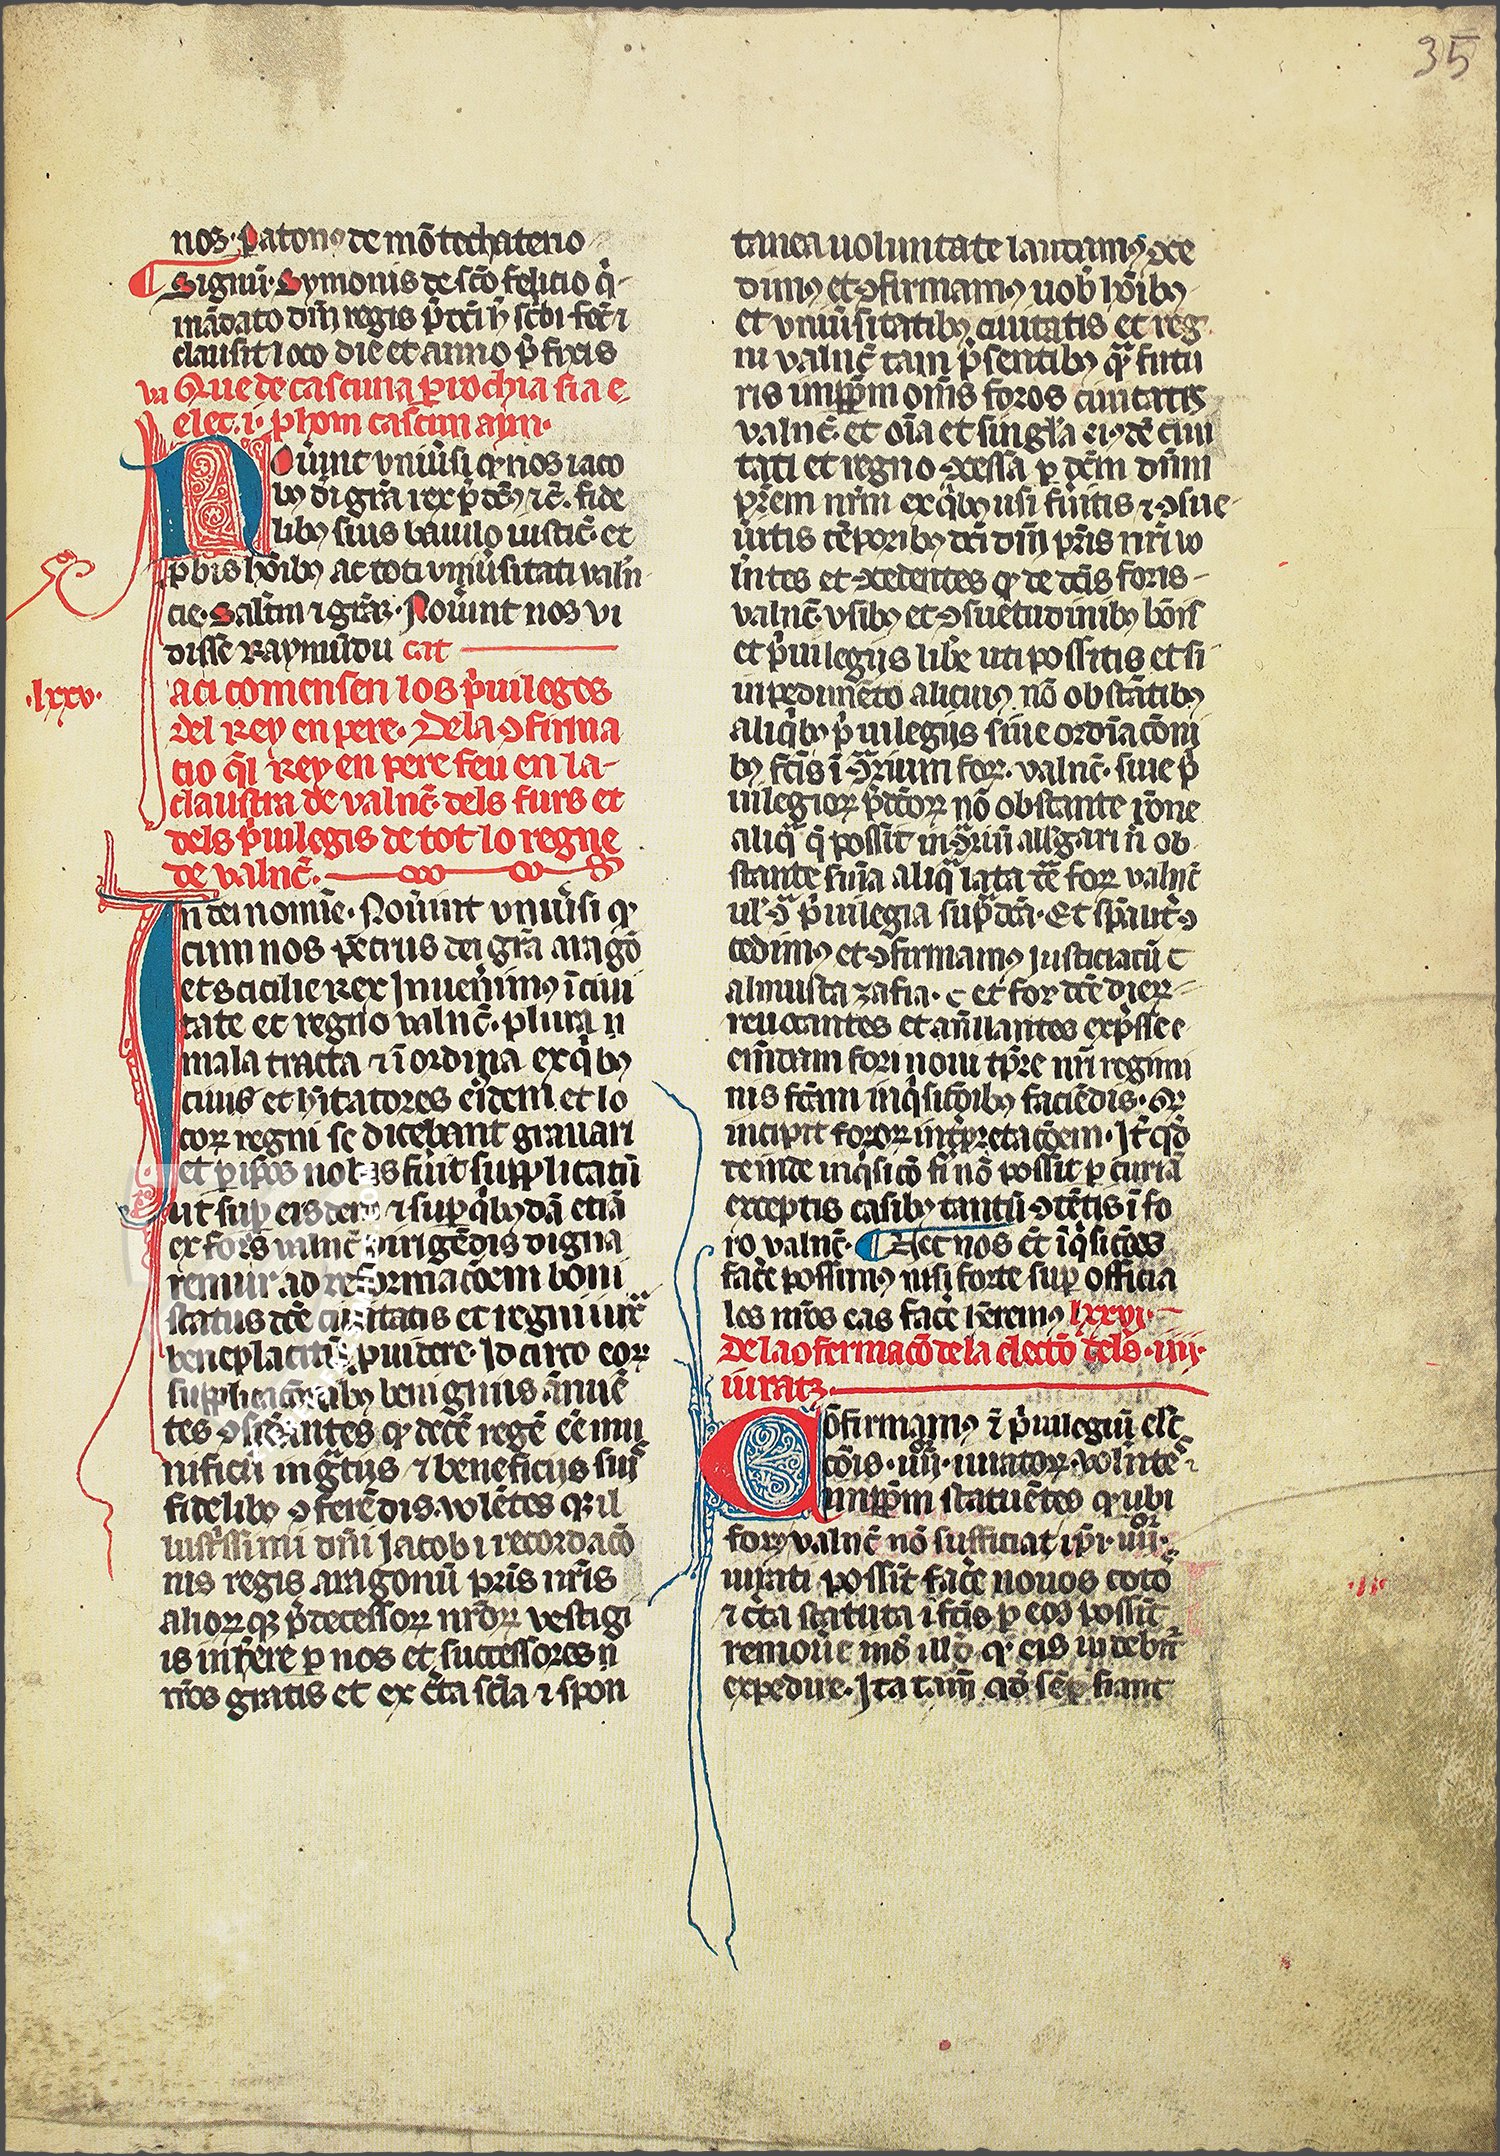 35
nos. Patonꝰ de mōtechaterio
Signū. Symonis de sc̄o felicio q̄
mādato dn̄i regis p̄dc̄i h̄ sc̄bi fec̄ ⁊
clausit loco die et anno p̄fixis
Que de cascuna ꝑrochia sia e
elet .i. phom cascun ayn.
Nouīnt vniūsi qꝛ nos iaco
bꝰ di gr̄a rex p̄dc̄ꝰ ⁊c̄. fide
libꝰ suis baiulo iustic̄. et
ꝓbis hōibꝰ ac toti vniūsitati valn̄
cie. Salt̄m ⁊ gr̄az. Nouīnt nos vi
disse Raymūdū cat
.lxxv.
aci comensen los p̄uileges
del Rey en pere. Dela ꝯfirma
cio q̄l Rey en pere feu en la
claustra de valnc̄. dels furs et
dels p̄uilegis de tot lo regne
de valnc̄.
In dei nomīe. Nouīnt vniūsi qꝛ
cum nos petrus dei gr̄a aragō
et scicilie Rex Inuenīmꝰ ī ciui
tate et regno valnc̄. plura n̄
mala tracta ⁊ ī ordīna ex q̄bꝰ
ciuis et hītatores eiꝰdem et lo
coꝝ regni se dicebant grauari
et ꝑ ip̄os nobis fūit supplicatū
ut suꝑ eisdem ⁊ suꝑ q̄bꝰdā etiā
ex foris valnc̄ dirigēdis digna
remur ad reformac̄oem boni
status dc̄e ciuitatis et regni iux̄
beneplacitū ꝓuidere. Idcirco eoꝝ
supplicac̄onibꝰ benignius ānuē
tes ꝯsid̄antes qꝛ decē regē eē mu
nificū in gr̄tijs ⁊ beneficijs suis
fidelibꝰ ꝯferēdis. volētes qꝫ il
lustrissimi dn̄i Jacobi recordac̄o
nis regis aragonū pr̄is nr̄is
alioꝝ qꝫ p̄decessoꝝ nr̄oꝝ vestigi
is inh̄ere ꝑ nos et successores n
r̄os gratis et ex c̄ta scīa ⁊ spon
tanea uoluntate laudamꝰ ꝯce
dimꝰ et ꝯfirmamꝰ uob̄ hōibꝰ
et vniūsitatibꝰ ciuitatis et reg
ni valnc̄ tam p̄sentibꝰ qᷓ futu
ris imꝑpm om̄s foros ciuitatis
valnc̄. et oīa et singl̄a eiꝰdē ciui
tati et regno ꝯcessa ꝑ dc̄m dn̄m
pr̄em nr̄m ex q̄bꝰ usi fuistis ⁊ ꝯsue
uistis tēporibꝰ dc̄i dn̄i pr̄is nr̄i vo
ln̄tes et ꝯcedentes qꝛ de dc̄is foris
valnc̄. vsibꝰ et ꝯsuetudinibꝰ bōis
et p̄uilegijs libē uti possitis et si
impedimēto alicuiꝰ. nō obstātibꝰ
aliq̄bꝰ p̄uilegijs siue ordīac̄oni
bꝰ fc̄is ī ꝯᷓrium foꝝ. valnc̄. siue p̄
uilegioꝝ p̄dc̄oꝝ nō obstante rōne
aliqᷓ q̄ possit in ꝯᷓriū allegari n̄ ob
stante sn̄ia aliqᷓ lata cōt̄ foꝝ valnc̄
ul̓ ꝯᷓ p̄uilegia supᷓdc̄a. Et sp̄alit̄ ꝯ
cedimꝰ et ꝯfirmamꝰ justiciatū c
revocantes et an̄llantes exp̄sse
nis fc̄am inq̄sic̄oibꝰ faciēdis. qꝛ
incipit foroꝝ int̄p̄tac̄oem. Jt̄ qđ
exceptis casibꝰ tantū ꝯtētis ī fo
ro valnc̄. Nec nos ēt īq̄sic̄oes
fac̄e possimꝰ nisi forte suꝑ officia
les nr̄os eas fac̄e h̄remꝰ lxxvj.
De la ꝯfermac̄o de la elecc̄o dels .iiij.
iuratz.
Cōfirmamꝰ ī p̄uilegiū elc̄
c̄ois .iiijor. iuratoꝝ. voln̄tes
imꝑpm statuētes qꝛ ubi
forꝰ valnc̄ nō sufficiat ip̄i .iiijor.
iurati possīt fac̄e nouos coto
⁊ c̄ta statuta ī fc̄is ꝑ eos possīt
remoūe mō illo qꝛ eis uidebit̄
expedire. Ita tam̄ qđ sēꝑ fiant